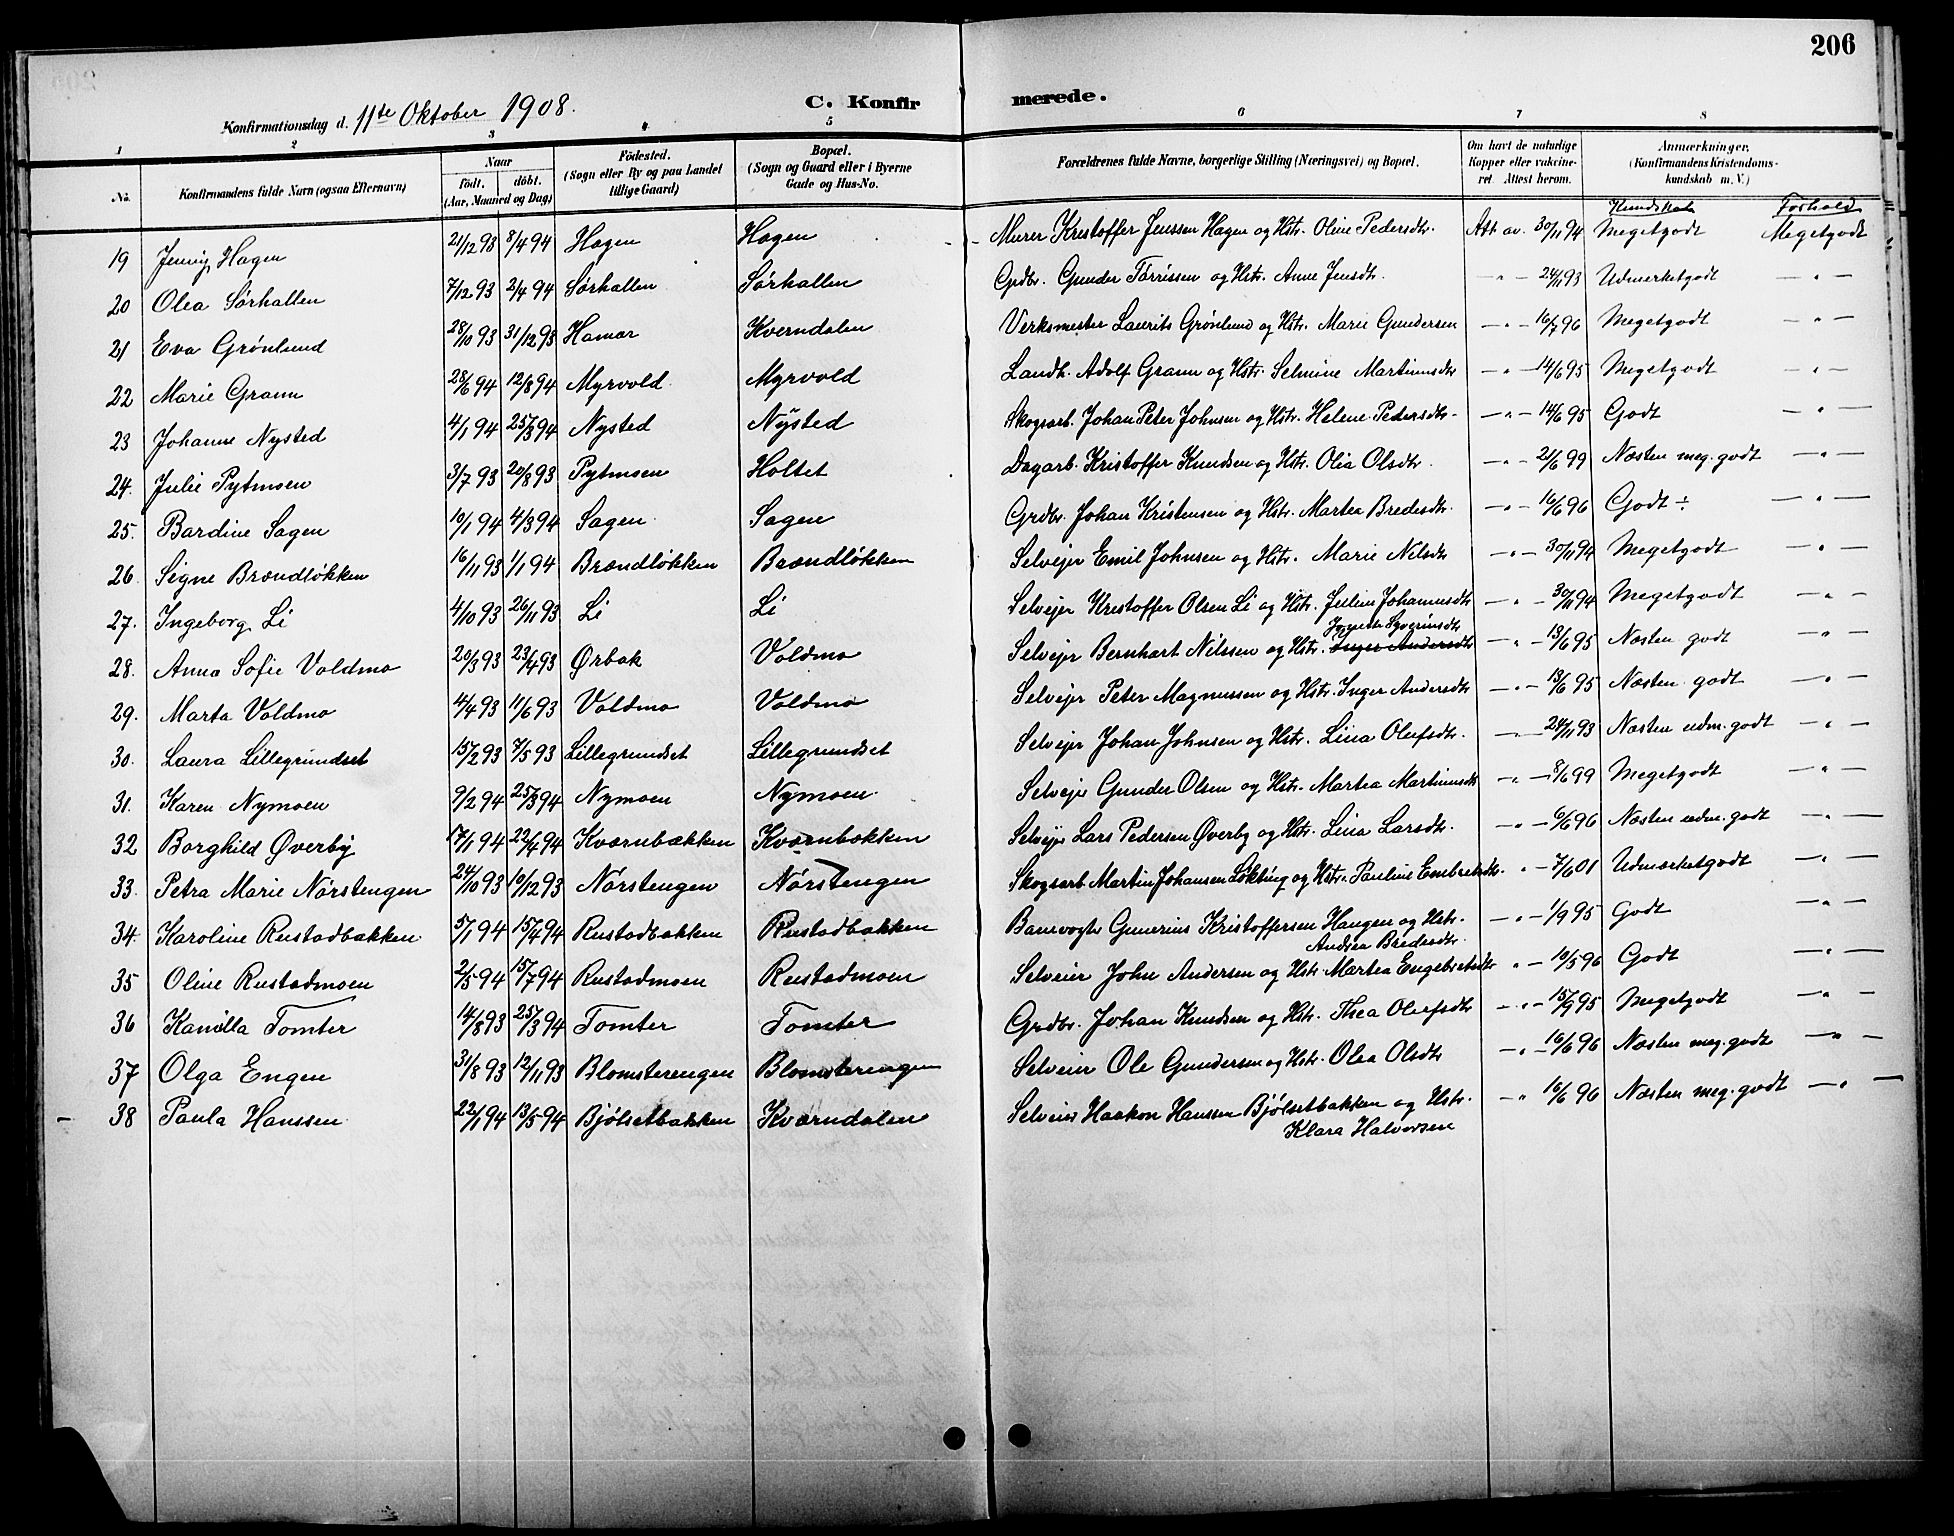 206
C. Konfirmerede.
Konfirmationsdag d. 11te Oktober 1908.
1 2 3 4 5 6 7 8
No. Konfirmandens fulde Navn (ogsaa Efternavn) Naar født. døbt. (Aar, Maaned og Dag) Fødested. (Sogn eller By og paa Landet tillige Gaard) Bopæl. (Sogn og Gaard eller i Byerne Gade og Hus-No. Forældrenes fulde Navne, borgerlige Stilling (Næringsvei) og Bopæl. Om havt de naturlige Kopper eller vakcineret. Attest herom. Anmærkninger. (Konfirmandens Kristendomskundskab m. V.)
Kundskab Forhold
19 Jenny Hagen 21/12 93 8/4 94 Hagen Hagen Murer Kristoffer Jenssen Hagen og Hstr. Oline Pedersdtr. Att. av. 30/11 94 Megetgodt Megetgodt
20 Olea Sørhallen 7/12 93 2/4 94 Sørhallen Sørhallen Grdbr. Gunder Tørrissen og Hstr. Anne Jensdtr. " - 24/11 93 Udmerketgodt — " —
21 Eva Grønlund 28/10 93 31/12 93 Hamar Kverndalen Verksmester Laurits Grønlund og Hstr. Marie Gundersen — " — 16/7 96 Megetgodt — " —
22 Marie Gramm 28/6 94 12/8 94 Myrvold Myrvold Landh. Adolf Gramm og Hstr. Selmine Martinusdtr — " — 14/6 95 Megetgodt — " —
23 Johanne Nysted 4/1 94 25/3 94 Nysted Nysted Skogsarb. Johan Peter Johnsen og Hstr. Helene Pedersdtr — " — 14/6 95 Godt — " —
24. Julie Pytmoen 3/7 93 20/8 93 Pytmoen Holtet Dagarb. Kristoffer Knudsen og Hstr. Olia Olsdtr. — " — 21/6 99 Næsten meg. godt — " —
25. Bardine Sagen 10/1 94 4/3 94 Sagen Sagen Grdbr. Johan Kristensen og Hstr. Martea Bredesdtr. — " — 16/6 96 Godt ÷ — " —
26. Signe Brændløkken 16/11 93 1/1 94 Brændløkken Brændløkken Selvejer Emil Johnsen og Hstr. Marie Nilsdtr — " — 30/11 94 Megetgodt — " —
27. Ingeborg Li 4/10 93 26/11 93 Li Li Selvejer Kristoffer Olsen Li og Hstr. Juline Johannesdtr — " — 30/11 94 Megetgodt — " —
28. Anna Sofie Voldmo 20/3 93 23/4 93 Ørbak Voldmo Selvejer Bernhart Nilssen og Hstr. Inger Andersdtr Syverinsdtr — " — 13/6 95 Næsten godt — " —
29. Marta Voldmo 11/4 93 11/6 93 Voldmo Voldmo Selvejer Peter Magnussen og Hstr. Inger Andersdtr — " — 13/6 95 Næsten godt — " —
30. Laura Lillegrundset 15/2 93 7/5 93 Lillegrundset Lillegrundset Selvejer Johan Johnsen og Hstr. Lina Olufsdtr. — " — 24/11 93 Næsten udm. godt — " —
31. Karen Nymoen 9/2 94 25/3 94 Nymoen Nymoen Selvejer Gunder Olsen og Hstr. Martea Martinusdtr — " — 8/6 99 Megetgodt — " —
32 Borghild Øverby 17/1 94 22/4 94 Kværnbækken Kværnbækken Selvejer Lars Pedersen Øverby og Hstr. Lina Larsdtr. — " — 6/6 96 Næsten udm. godt — " —
33. Petra Marie Nørstengen 24/10 93 10/12 93 Nørstengen Nørstengen Skogsarb Martin Johansen Løkting og Hstr. Pauline Embretsdtr. " — 7/6 01 Udmærketgodt — " —
34. Karoline Rustadbakken 5/1 94 15/4 94 Rustadbakken Rustadbakken Banevogter Gunerius Kristoffersen Haugen og Hstr. Andrea Bredesdtr. — " — 1/9 95 Godt — " —
35 Oline Rustadmoen 2/5 94 15/7 94 Rustadmoen Rustadmoen Selveier John Andersen og Hstr. Martea Engebretsdtr " — 10/5 96 Godt — " —
36 Kamilla Tomter 14/8 93 25/3 94 Tomter Tomter Grdbr. Johan Knudsen og Hstr. Thea Olufsdtr — " — 15/9 95 Megetgodt — " —
37 Olga Engen 31/8 93 12/11 93 Blomsterengen Blomsterengen Selveier Ole Gundersen og Hstr. Olea Olsdtr — " — 16/6 96 Næsten meg. godt — " —
38 Paula Hanssen 22/1 94 13/5 94 Bjølsetbakken Kværndalen Selveier Haakon Hanssen Bjølsetbakken og Hstr. Klara Halvorsen — " 16/6 96 Næsten meg. godt — " —